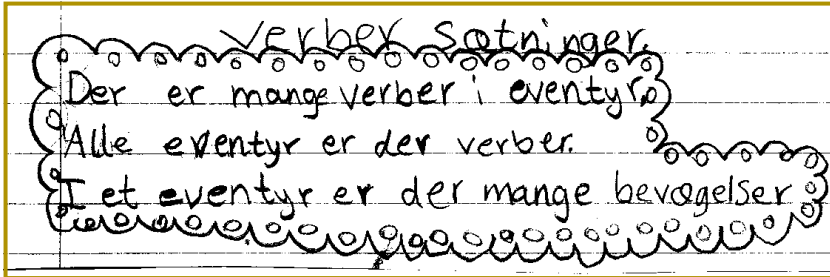 Verber sætninger.
Der er mange verber i eventyr.
Alle eventyr er der verber.
I et eventyr er der mange bevægelser